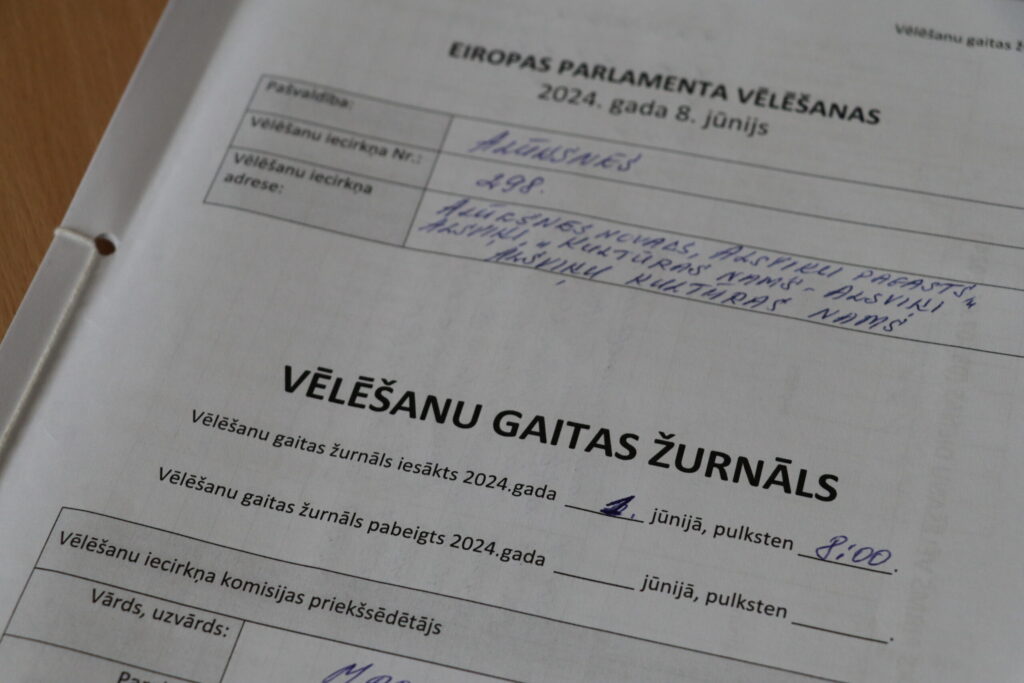 Vēlēšanu gaitas ž
EIROPAS PARLAMENTA VĒLĒŠANAS
2024. gada 8. jūnijs
Pašvaldība: ALŪKSNES
Vēlēšanu iecirkņa Nr.: 298.
Vēlēšanu iecirkņa
adrese:
ALŪKSNES NOVADS, ALSVIĶU PAGASTS,
ALSVIĶI, "KULTŪRAS NAMS - ALSVIĶI"
ALSVIĶU KULTŪRAS NAMS
VĒLĒŠANU GAITAS ŽURNĀLS
Vēlēšanu gaitas žurnāls iesākts 2024.gada 1. jūnijā, pulksten 8:00.
Vēlēšanu gaitas žurnāls pabeigts 2024.gada ______ jūnijā, pulksten ______.
Vēlēšanu iecirkņa komisijas priekšsēdētājs
Vārds, uzvārds: